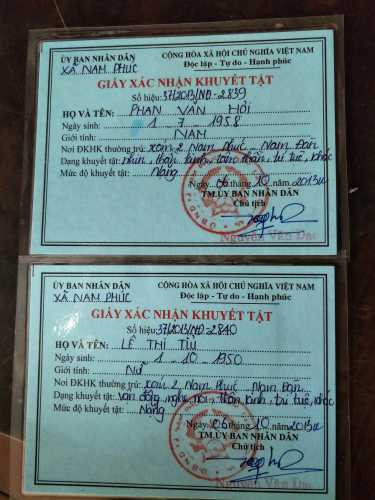 ỦY BAN NHÂN DÂN
XÃ NAM PHÚC
CỘNG HÒA XÃ HỘI CHỦ NGHĨA VIỆT NAM
Độc lập - Tự do - Hạnh phúc
GIẤY XÁC NHẬN KHUYẾT TẬT
Số hiệu: 37/2013/NĐ-2839
HỌ VÀ TÊN: PHAN VĂN HỒI
Ngày sinh: 1 - 7 - 1958
Giới tính: NAM
Nơi ĐKHK thường trú: xóm 2, Nam Phúc, Nam Đàn
Dạng khuyết tật: nhìn, thần kinh, tâm thần, trí tuệ, khác
Mức độ khuyết tật: Nặng
Ngày 06 tháng 10 năm 2013
TM.ỦY BAN NHÂN DÂN
Chủ tịch
Nguyễn Văn
ỦY BAN NHÂN DÂN
XÃ NAM PHÚC
CỘNG HÒA XÃ HỘI CHỦ NGHĨA VIỆT NAM
Độc lập - Tự do - Hạnh phúc
GIẤY XÁC NHẬN KHUYẾT TẬT
Số hiệu: 37/2013/NĐ-2840
HỌ VÀ TÊN: LÊ THỊ TÙ
Ngày sinh: 1 - 10 - 1950
Giới tính: NỮ
Nơi ĐKHK thường trú: xóm 2, Nam Phúc, Nam Đàn
Dạng khuyết tật: vận động, nghe, nói, thần kinh, trí tuệ, khác
Mức độ khuyết tật: Nặng
Ngày 06 tháng 10 năm 2013
TM.ỦY BAN NHÂN DÂN
Chủ tịch
Nguyễn Văn